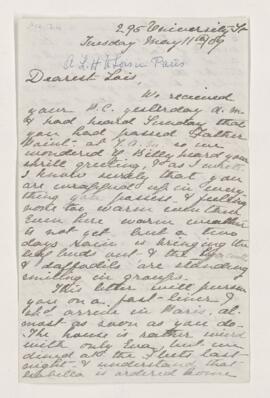 295 University St
Tuesday May 11th/09
A.L.H. to Lois in Paris
Dearest Lois,
We received
your P.C. yesterday a.m.
& had heard Sunday that
you had passed Father
Point at 7 a.m. so we
wondered if Billy heard your
shrill greeting, & as I write
I know surely that you
are wrapped up in every
thing you possess & feeling
none too warm even then
Even here warm weather
is not yet but a two
days rain is bringing the
buds out & the
& daffodils are standing
smiling in groups.
This letter will pursue
you on a fast liner &
shd arrive in Paris al
most as soon as you do.
The house is rather weird
with only Eva, but we
dined at the Fleets last
night & understand that
is ordered home